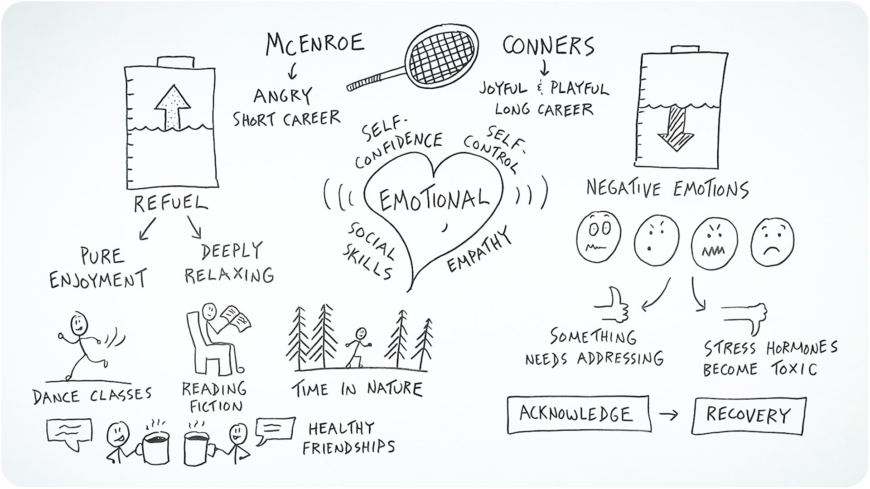 McENROE
ANGRY
SHORT CAREER
CONNERS
JOYFUL & PLAYFUL
LONG CAREER
SELF-
CONFIDENCE
SELF-
CONTROL
EMOTIONAL
SOCIAL
SKILLS
EMPATHY
REFUEL
PURE
ENJOYMENT
DEEPLY
RELAXING
DANCE CLASSES
READING
FICTION
TIME IN NATURE
HEALTHY
FRIENDSHIPS
NEGATIVE EMOTIONS
SOMETHING
NEEDS ADDRESSING
STRESS HORMONES
BECOME TOXIC
ACKNOWLEDGE → RECOVERY